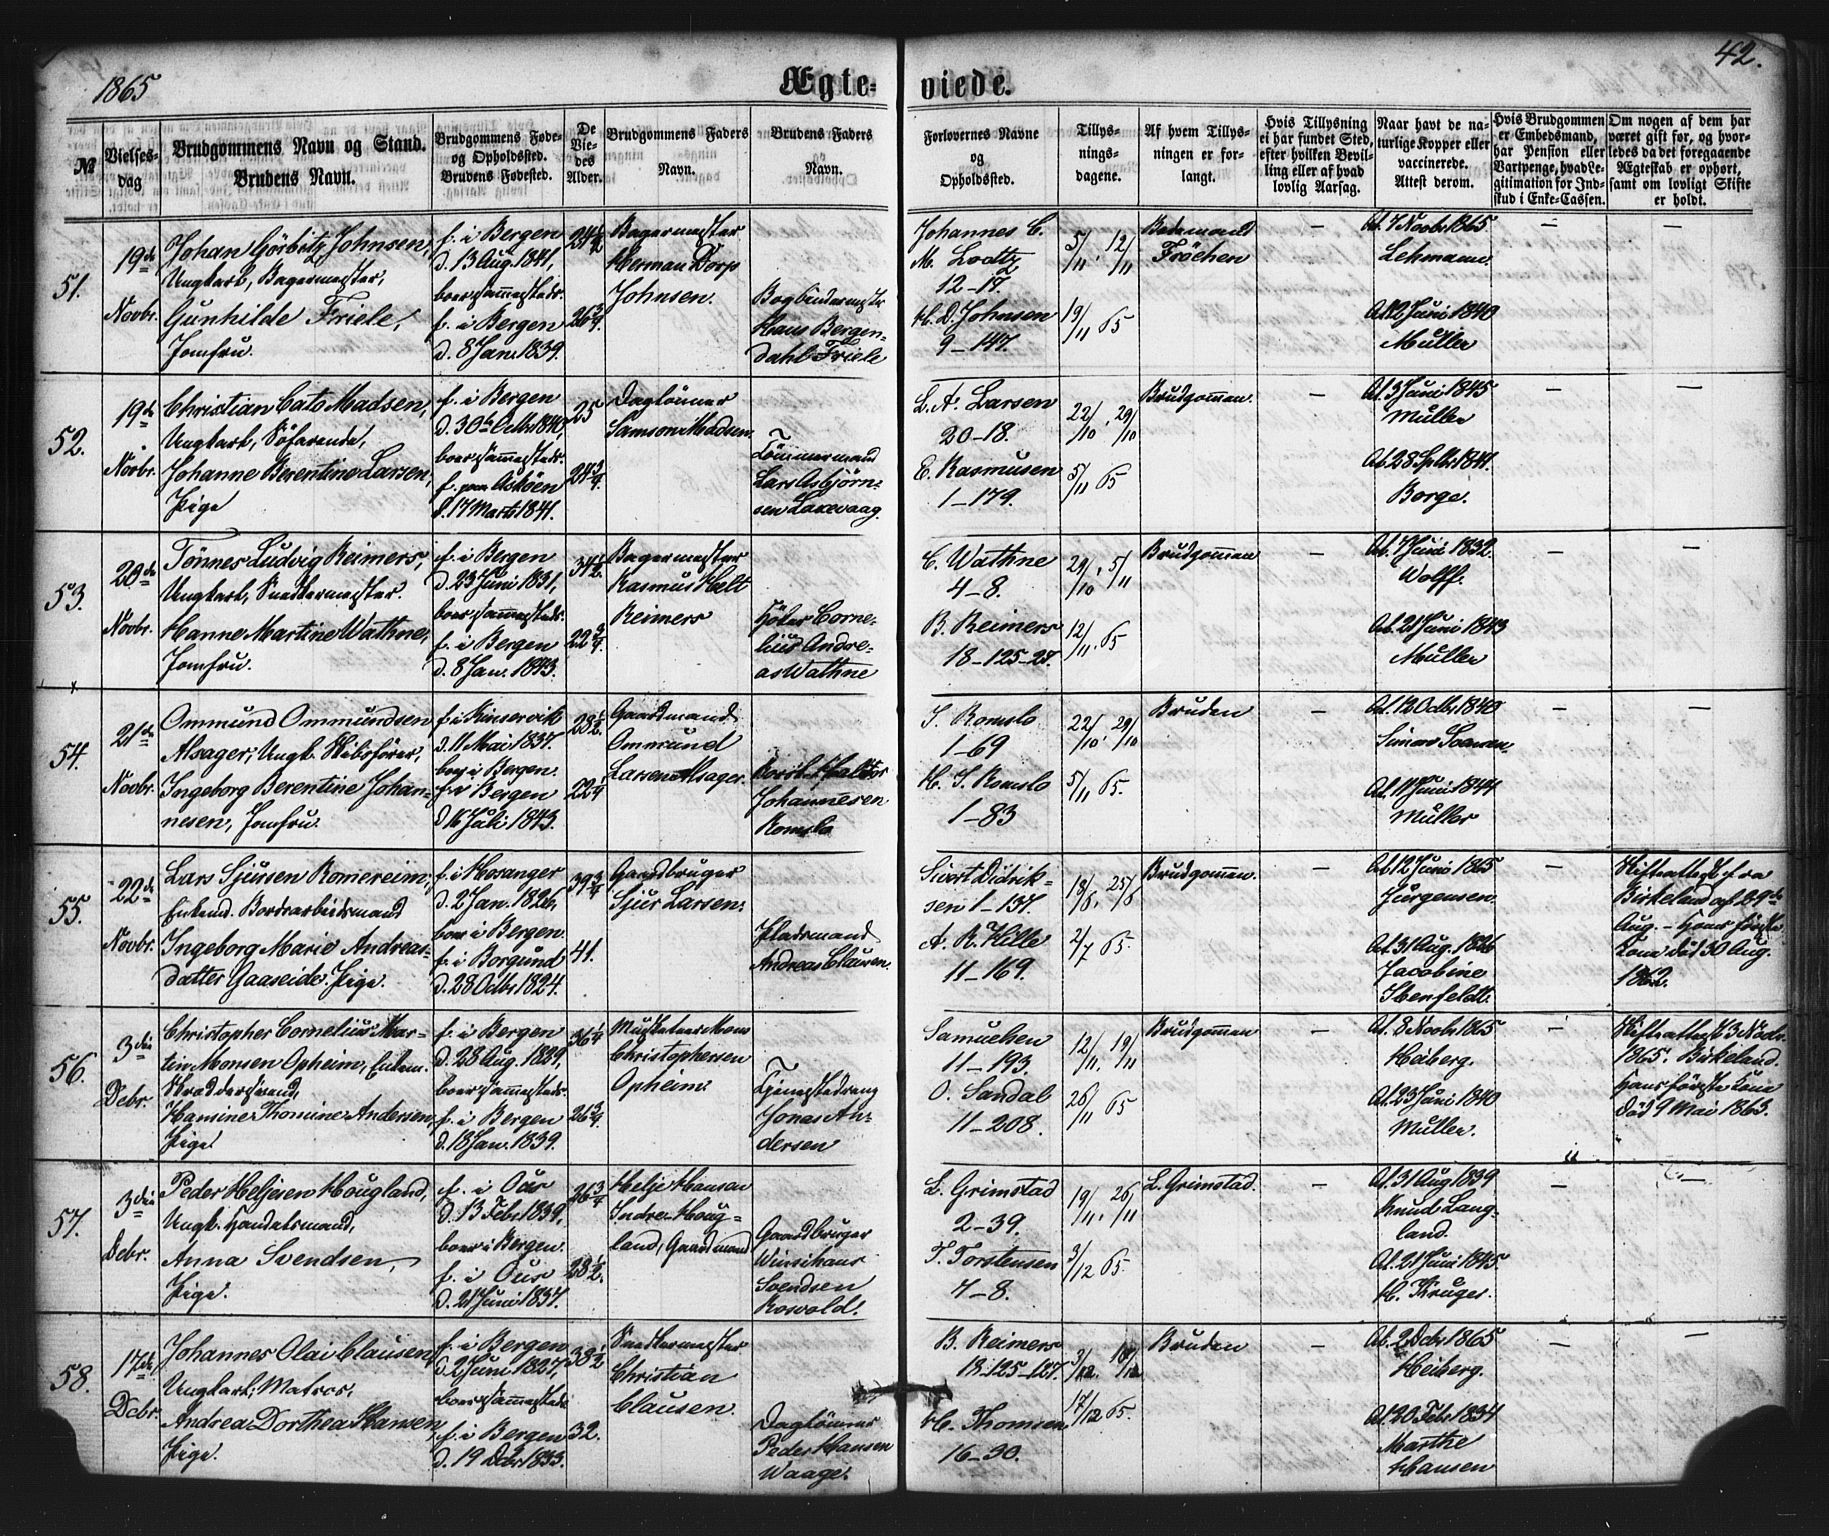 1865
Ægteviede.
42.
№
Vielses-dag
Brudgommens Navn og Stand.
Brudens Navn.
Brudgommens Føde- og Opholdssted.
Brudens Fødested.
De Viedes Alder.
Brudgommens Faders Navn.
Brudens Faders Navn.
Forlovernes Navne og Opholdssted.
Tillysningsdagene.
Af hvem Tillysningen er forlangt.
Hvis Tillysning ei har fundet Sted, efter hvilken Bevilling eller af hvad lovlig Aarsag.
Naar havt de naturlige Kopper eller vaccinerede. Attest derom.
Hvis Brudgommen er Embedsmand, har Pension eller Vartpenge, hvad Legitimation for Indskud i Enke-Cassen.
Om nogen af dem har været gift før, og hvorledes da det foregaaende Ægteskab er ophørt, samt om lovligt Skifte er holdt.
51.
19de Novbr.
Johan Görbitz Johnsen,
Ungkarl, Bagermester,
Gunhilde Friele,
Jomfru.
f. i Bergen
d. 13 Aug. 1841,
boer sammesteds.
f. i Bergen
d. 8 Jan. 1839.
24 1/2
26 3/4
Bagermester
Herman Dorp
Johnsen.
Bogbindermester
Hans Bergen-
dahl Friele
Johannes C.
M. Lodtz
12-17.
H. D. Johnsen
9-147.
5/11, 12/11
19/11 65
Bedemand
Fröchen
—
At. 7 Novbr 1865
Lehmann.
At. 12 Juni 1840
Müller
—
—
52.
19de Novbr.
Christian Cato Madsen,
Ungkarl, Söfarende,
Johanne Berentine Larsen,
Pige
f. i Bergen
d. 30te Octbr. 1840,
boer sammesteds.
f. paa Asköen
d. 17 Marts 1841.
25
24 3/4
Daglönner
Samson Madsen.
Tömmermand
Lars Asbjörn-
sen Laxevaag.
L. A. Larsen
20-18.
E. Rasmusen
1-179.
22/10, 29/10
5/11 65
Brudgommen.
—
At. 3 Juni 1845
Müller
At. 28 Septbr 1841.
Borge.
—
—
53.
20de Novbr.
Tönnes Ludvig Reimers,
Ungkarl, Snedkermester.
Hanne Martine Wathne,
Jomfru.
f. i Bergen
d. 23 Juni 1831,
boer sammesteds.
f. i Bergen
d. 8 Jan. 1843.
34 1/2
22 3/4
Bagermester
Rasmus Holt
Reimers
Höker Corne-
lius Andre-
as Wathne
C. Wathne
4-8.
B. Reimers
18-125-27.
29/10, 5/11
12/11. 65
Brudgommen
—
At. 7 Juni 1832.
Wolff.
At. 21 Juni 1843
Müller
—
—
54.
21de Novbr.
Ommund Ommundsen
Alsager, Ungk. Skibsförer,
Ingeborg Berentine Johan-
nesen, Jomfru.
f. i Kinservik
d. 11 Mai 1837.
boer i Bergen.
f. i Bergen
d. 16 Juli 1843.
28 1/2
22 1/4
Gaardmand
Ommund
Larsen Alsager.
Johannesen
Romslo
I. Romslo
1-69
H. I. Romslo
1-83
22/10, 29/10
5/11 65.
Bruden
—
At. 12 Octbr 1840
At. 11 Juni 1844
Müller
—
—
55.
22de Novbr.
Lars Sjursen Romereim,
Enkemd. Bordarbeidsmand
Ingeborg Marie Andreas-
datter Gaaseide. Pige.
f. i Hosanger
d. 2 Jan. 1826,
boer i Bergen.
f. i Borgund
d. 28 Octbr. 1824.
39 3/4
41.
Gaardbruger
Sjur Larsen.
Pladsmand
Andreas Clausen.
Sivert Didrik-
sen 1-137.
A. R. Hille
11-169.
18/6, 25/6
2/7 65.
Brudgommen.
—
At. 12 Juni 1865
Jürgensen.
At. 31 Aug. 1826
Jacobine
Ibenfeldt.
—
Skifteattest fra
Birkeland af 29de
Aug. – Hans förste
Kone död 30 Aug.
1862.
56.
3die Decbr.
Christopher Cornelius Mar-
tin Monsen Opheim, Enkem.
Skraddersvend,
Hansine Thomine Andersen,
Pige.
f. i Bergen
d. 28 Aug. 1829,
boer sammesteds.
f. i Bergen
d. 18 Jan. 1839.
36 1/4
26 3/4
Musketeer Mons
Christophersen
Opheim.
Tjenestedreng
Jonas An-
dersen
Samuelsen
11-193.
O. Sandal
11-208.
12/11, 19/11
26/11 65
Brudgommen
—
At. 8 Novbr 1865
Heiberg.
At. 23 Juni 1840
Müller.
—
Skifteattest 3 Novbr.
1865. Birkeland.
Hans förste Kone
död 9 Mai 1863.
57.
3die Decbr.
Peder Heljesen Hougland,
Ungk. Handelsmand,
Anna Svendsen,
Pige.
f. i Ous
d. 13 Febr. 1839,
boer i Bergen.
f. i Ous
d. 21 Juni 1837.
26 3/4
28 1/2.
Helje Hansen
Indre Houg-
land, Gaardmand
Gaardbruger
Winsihans
Svendsen
Rosvold.
L. Grimstad
2-39.
T. Torstensen
4-8.
19/11, 26/11
3/12 65.
L. Grimstad.
—
At. 31 Aug 1839
Knud Lang-
land.
At. 21 Juni 1845
H. Kruges.
—
—
58.
17de Decbr.
Johannes Olai Clausen,
Ungkarl, Matros,
Andrea Dorthea Hansen,
Pige.
f. i Bergen
d. 2 Juni 1827,
boer sammesteds
f. i Bergen
d. 19 Decbr 1833.
38 1/2
32.
Snedkermester
Christian
Clausen.
Daglönner
Peder Hansen
Waage.
B. Reimers
18-125-127.
H. Thomsen
16-30.
3/12, 10/12
17/12 65.
Bruden
—
At. 2 Decbr 1865
Heiberg.
At. 20 Febr 1834
Marthe
Hansen
—
—